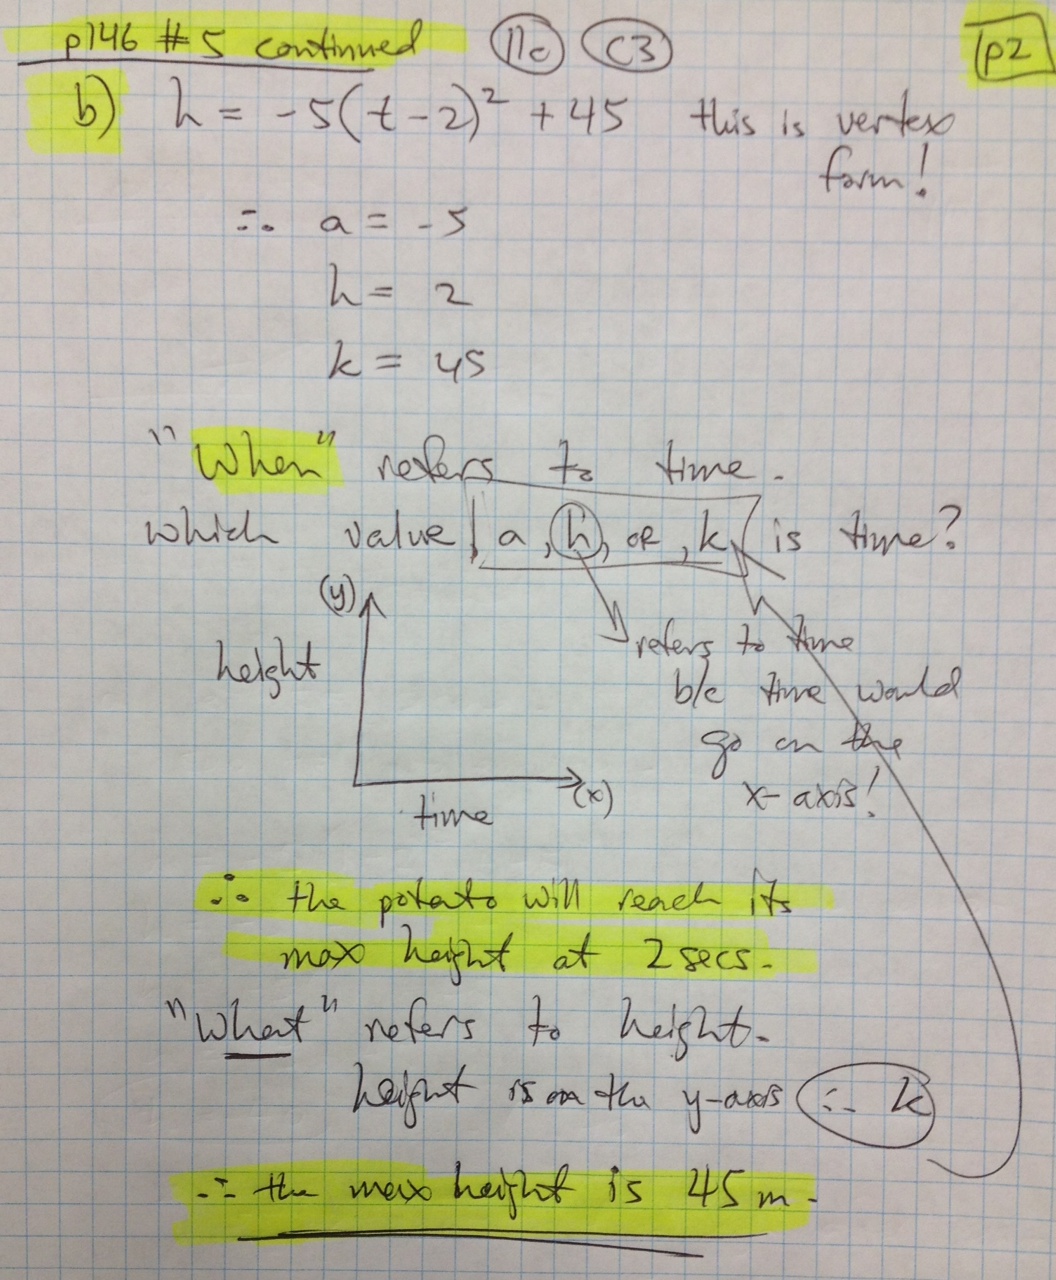 p146 #5 continued 11c C3 p2
b) h = -5(t-2)² + 45 this is vertex
form!
∴ a = -5
h = 2
k = 45
"When" refers to time.
which value a, h, or, k is time?
(y)
refers to time
height
b/c time would
go on the
x-axis!
(x)
time
∴ the potato will reach its
max height at 2 secs.
"What" refers to height.
height is on the y-axis ∴ k
∴ the max height is 45 m.